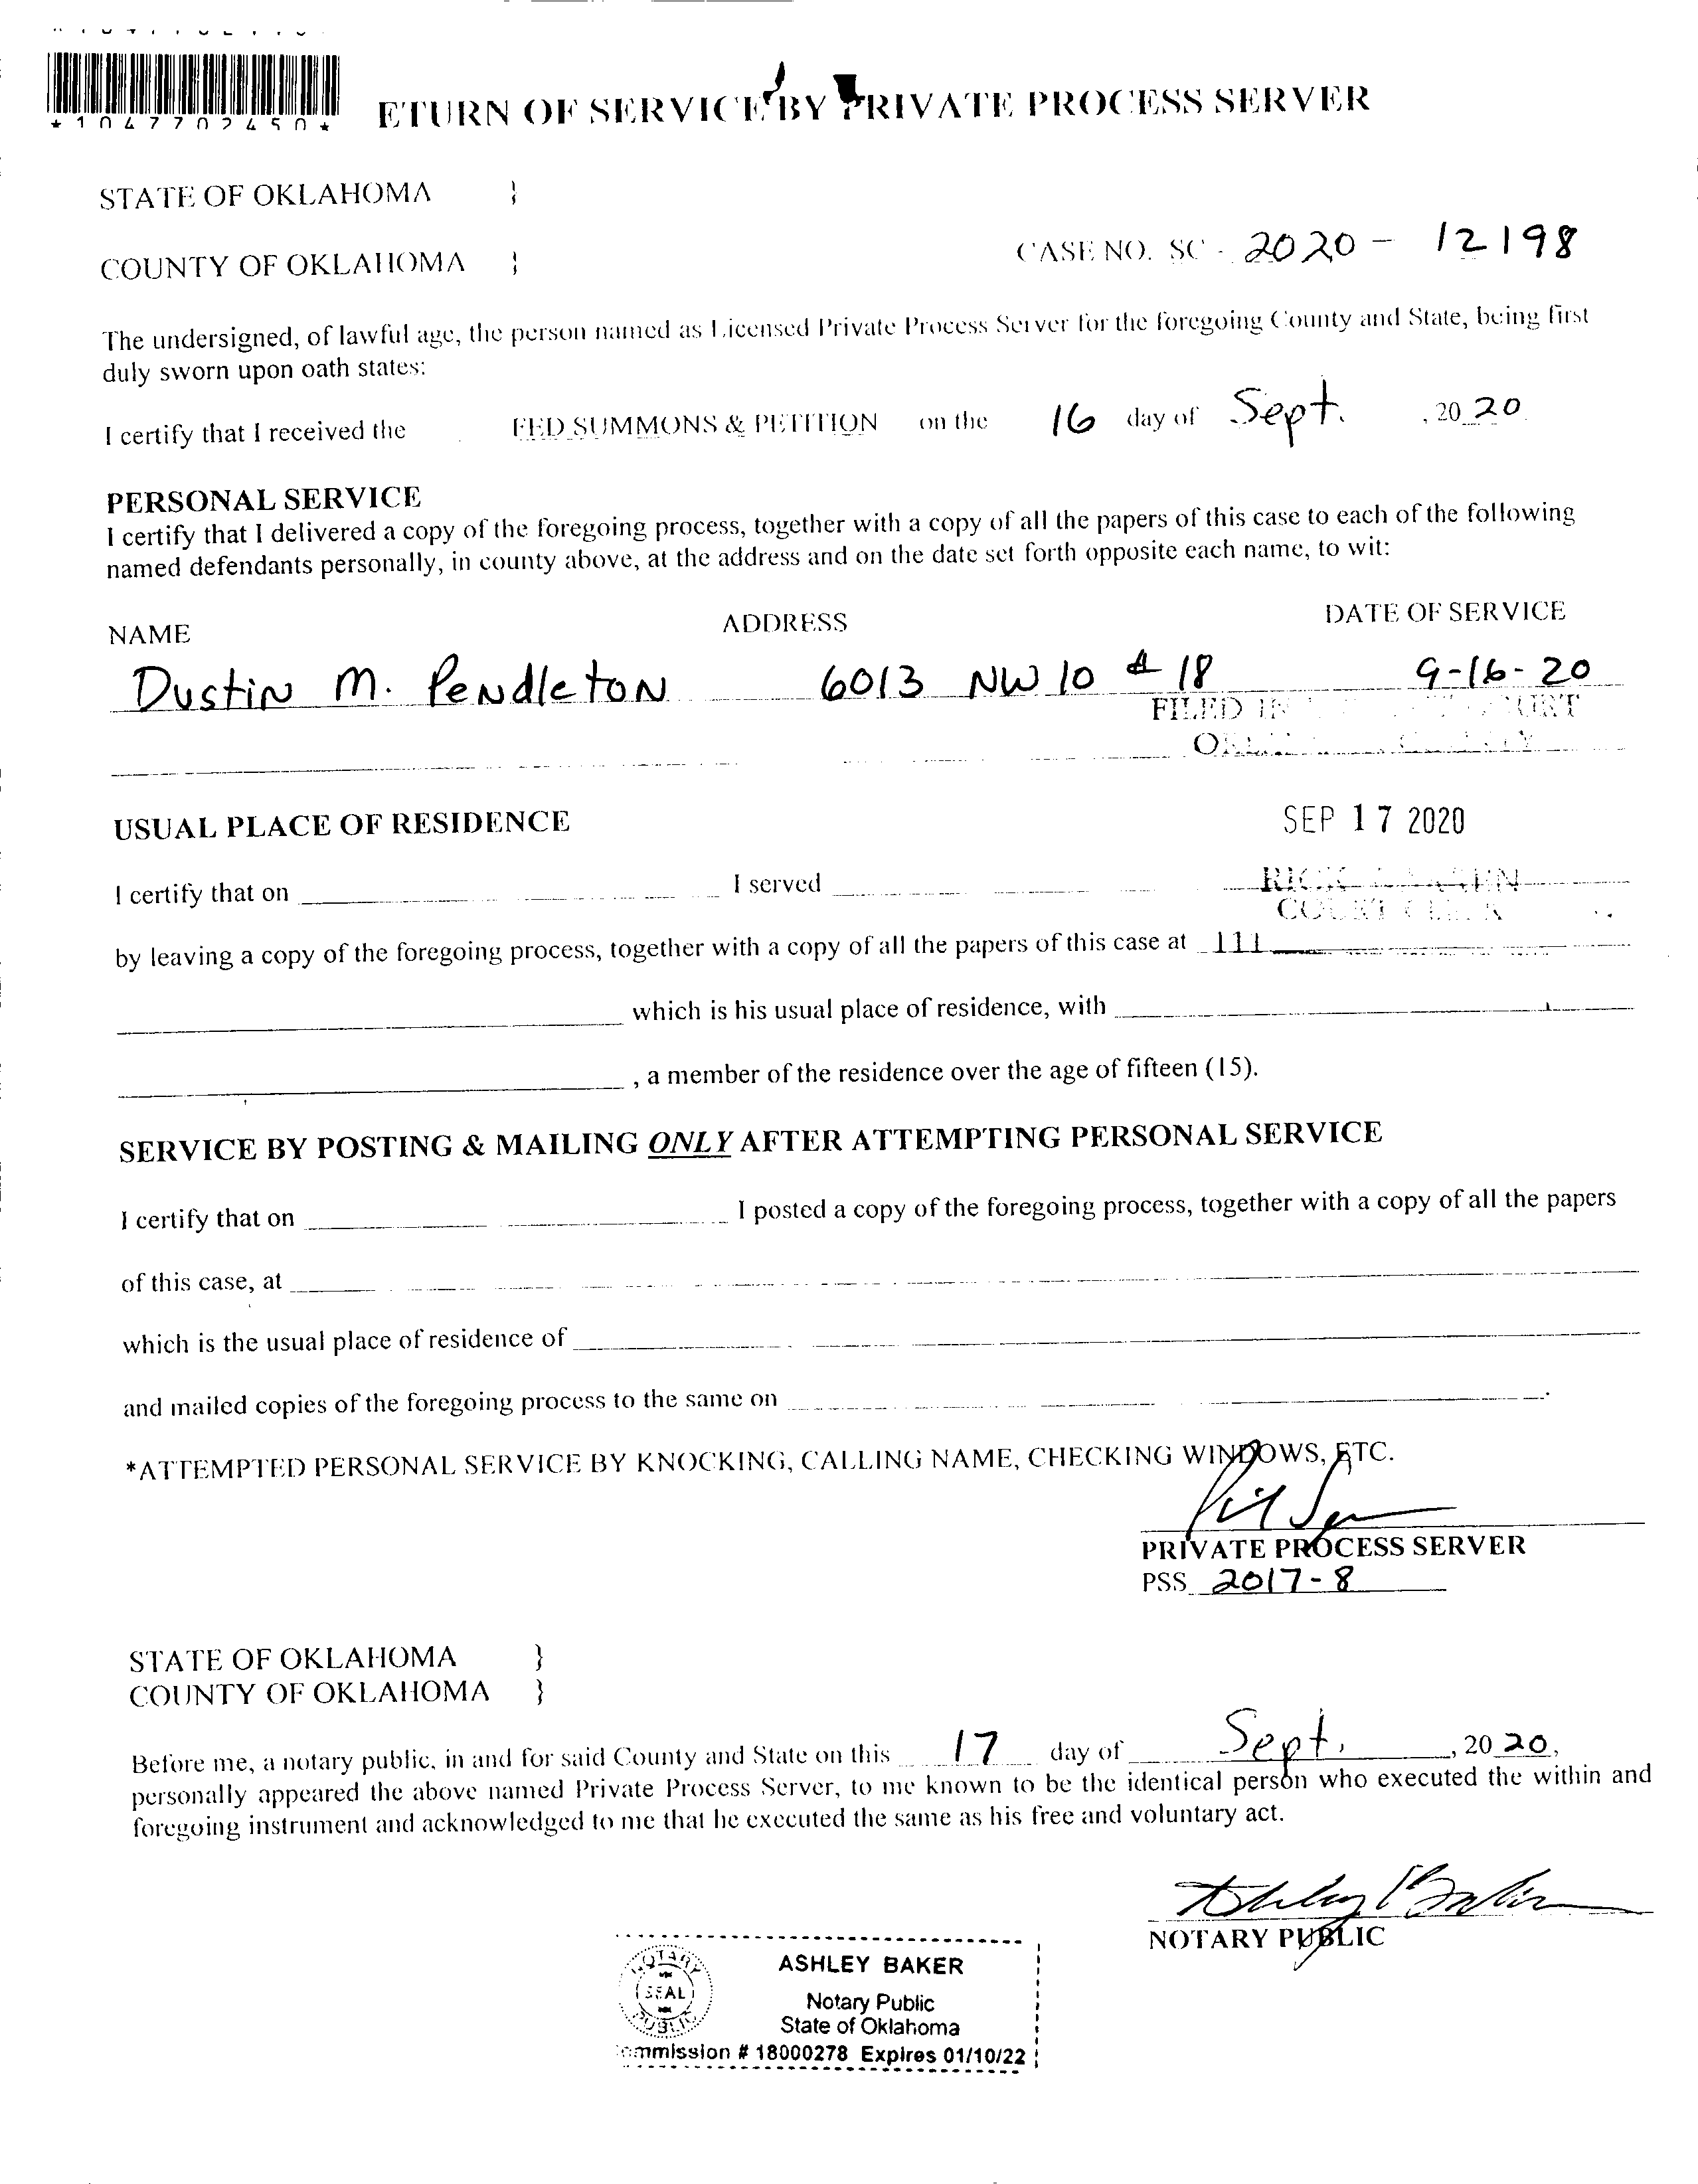 *1047702450*
ETURN OF SERVICE BY PRIVATE PROCESS SERVER
STATE OF OKLAHOMA }
COUNTY OF OKLAHOMA } CASE NO. SC - 2020 - 12198
The undersigned, of lawful age, the person named as Licensed Private Process Server for the foregoing County and State, being first
duly sworn upon oath states:
I certify that I received the FED SUMMONS & PETITION on the 16 day of Sept. , 20 20
PERSONAL SERVICE
I certify that I delivered a copy of the foregoing process, together with a copy of all the papers of this case to each of the following
named defendants personally, in county above, at the address and on the date set forth opposite each name, to wit:
NAME ADDRESS DATE OF SERVICE
Dustin M. Pendleton 6013 NW 10 # 18 9-16-20
FILED IN
USUAL PLACE OF RESIDENCE SEP 17 2020
I certify that on I served
COURT CLERK
by leaving a copy of the foregoing process, together with a copy of all the papers of this case at 111
which is his usual place of residence, with
, a member of the residence over the age of fifteen (15).
SERVICE BY POSTING & MAILING ONLY AFTER ATTEMPTING PERSONAL SERVICE
I certify that on I posted a copy of the foregoing process, together with a copy of all the papers
of this case, at
which is the usual place of residence of
and mailed copies of the foregoing process to the same on .
*ATTEMPTED PERSONAL SERVICE BY KNOCKING, CALLING NAME, CHECKING WINDOWS, ETC.
PRIVATE PROCESS SERVER
PSS 2017-8
STATE OF OKLAHOMA }
COUNTY OF OKLAHOMA }
Before me, a notary public, in and for said County and State on this 17 day of Sept. , 20 20,
personally appeared the above named Private Process Server, to me known to be the identical person who executed the within and
foregoing instrument and acknowledged to me that he executed the same as his free and voluntary act.
Ashley Baker
NOTARY PUBLIC
NOTARY SEAL PUBLIC
ASHLEY BAKER
Notary Public
State of Oklahoma
ommission # 18000278 Expires 01/10/22